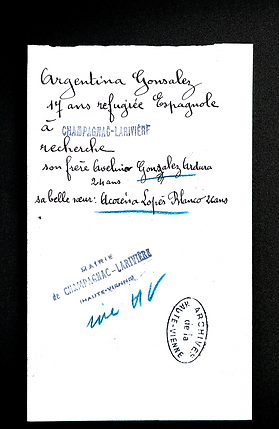 Argentina Gonsalez
17 ans refugiée Espagnole
à CHAMPAGNAC-LARIVIÈRE
recherche
son frère Avelino Gonzalez Ardura
24 ans
sa belle sœur: Acoréna Lopès Blanco 26 ans
MAIRIE
de CHAMPAGNAC-LARIVIÈRE
(HAUTE-VIENNE)
ARCHIVES
de la
HAUTE-VIENNE